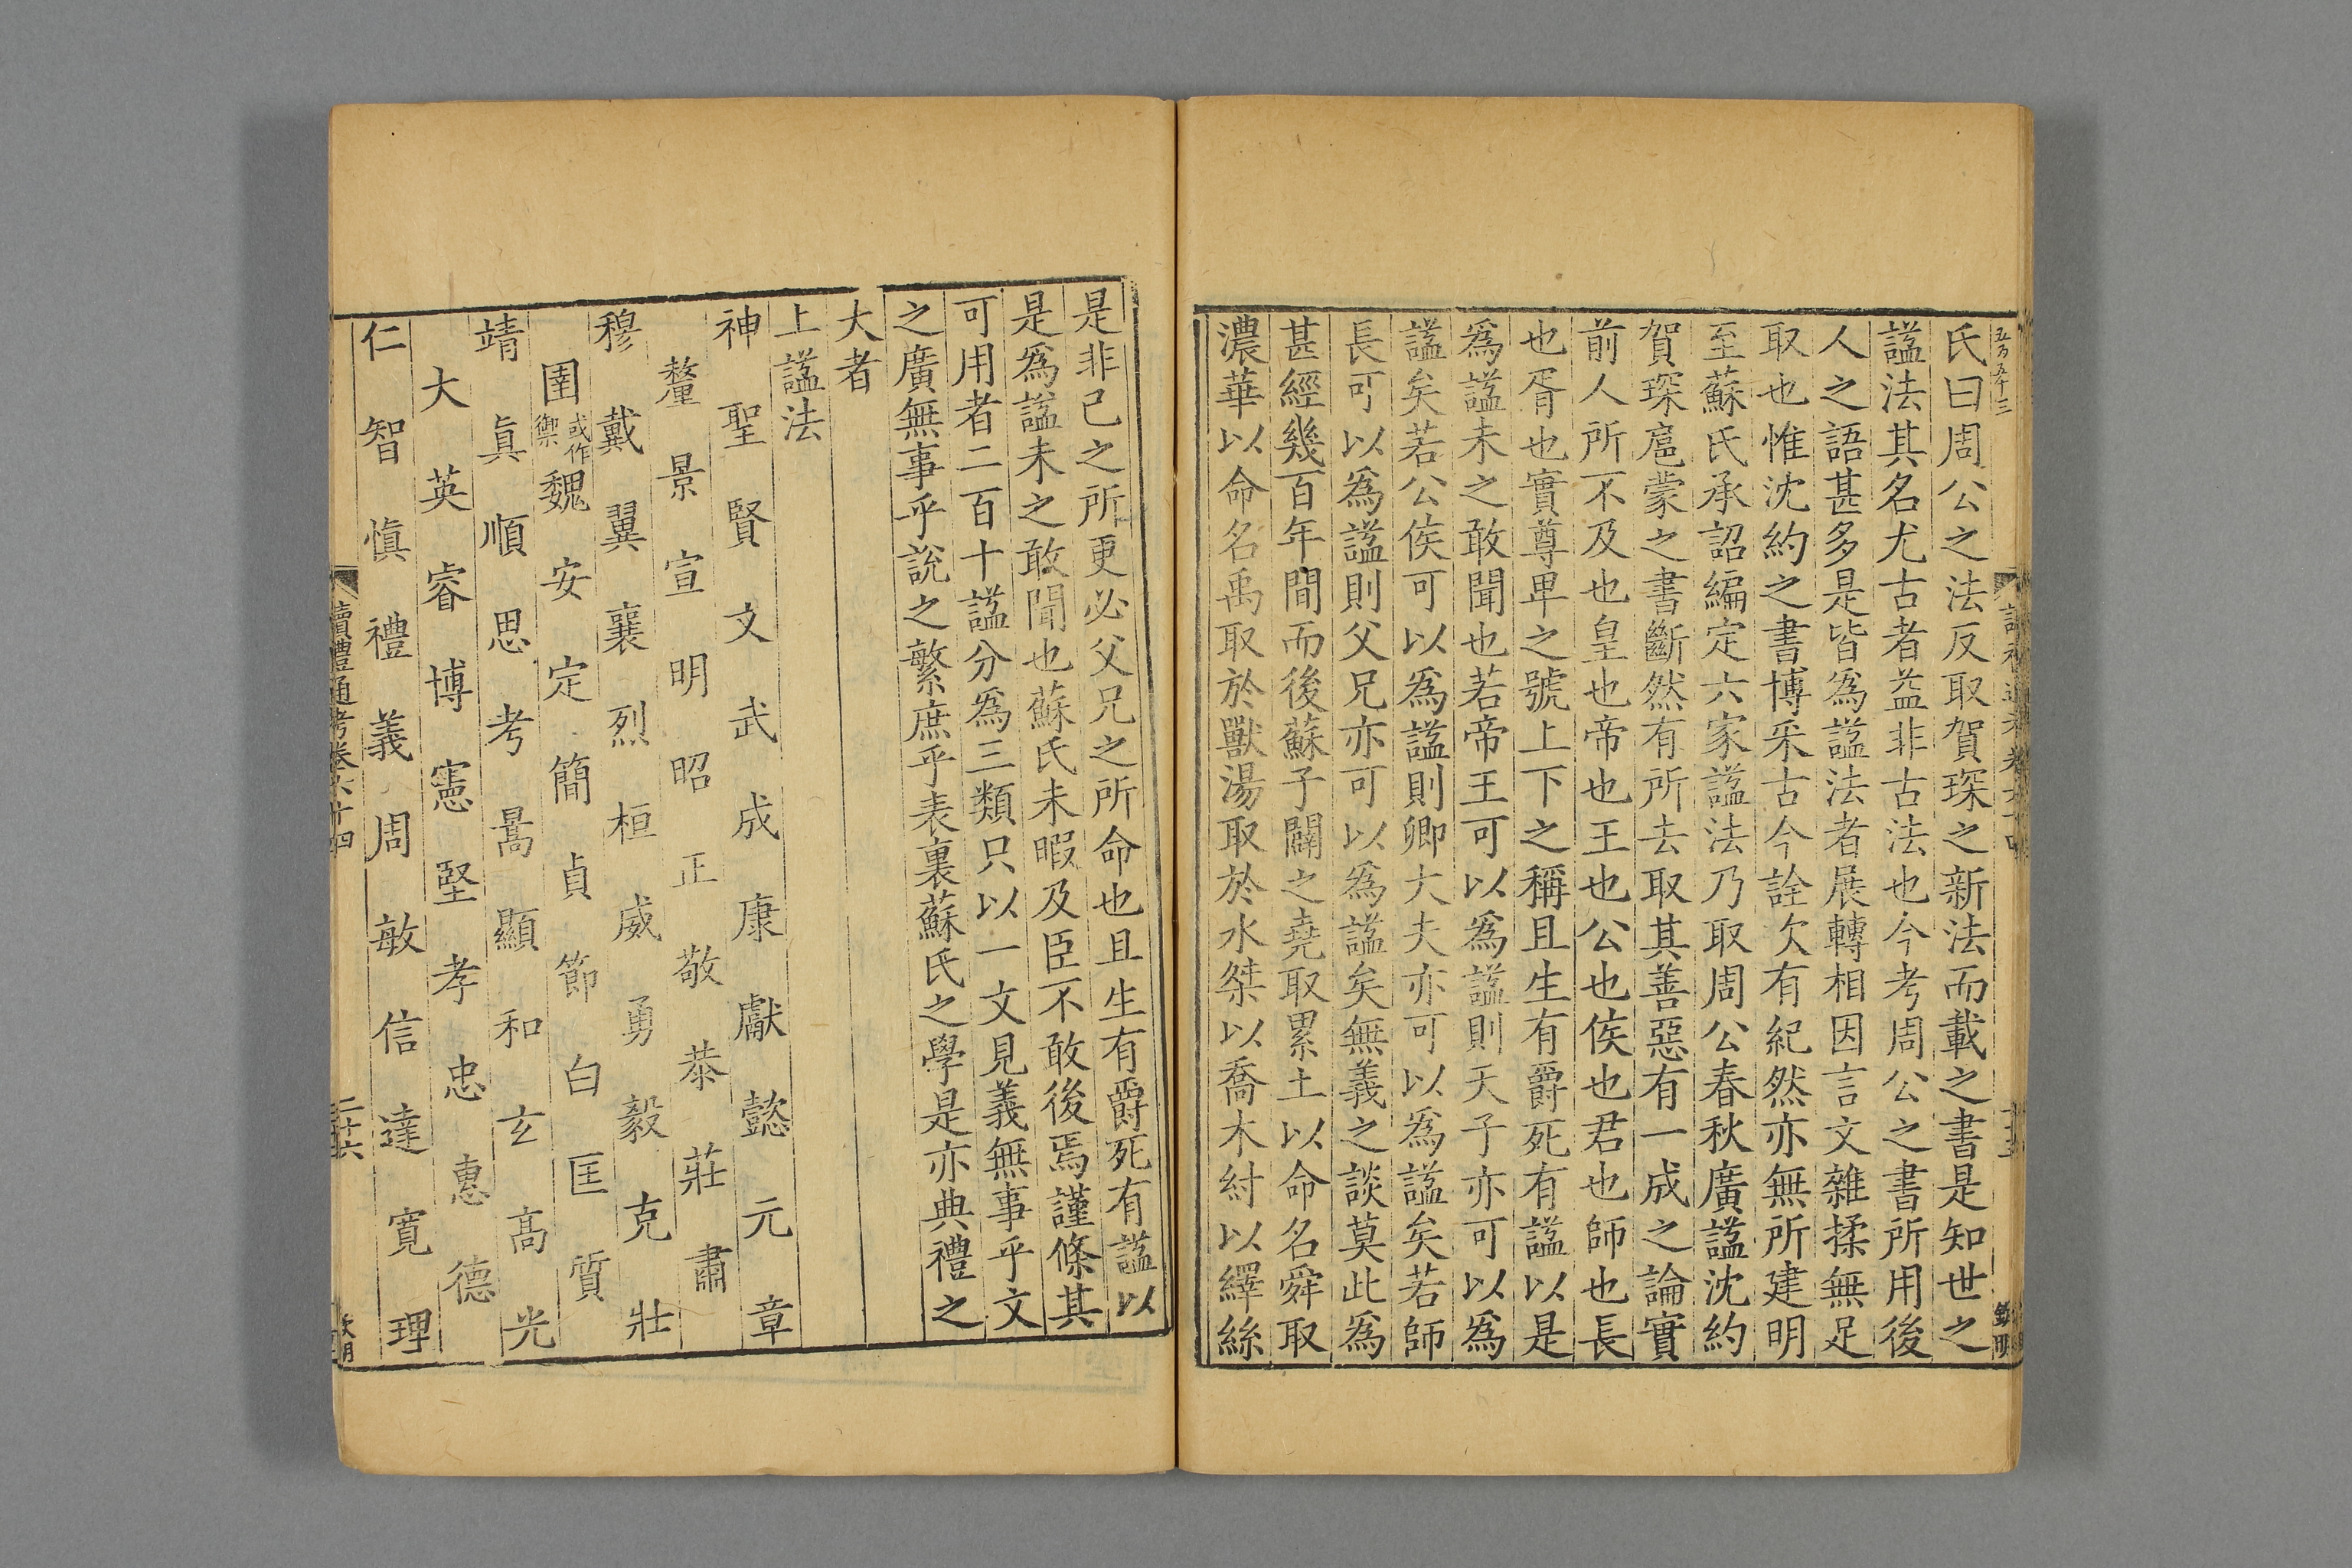 五万五千三
氏曰周公之法反取賀琛之新法而載之書是知世之
諡法其名尤古者益非古法也今考周公之書所用後
人之語甚多是皆爲諡法者展轉相因言文雜揉無足
取也惟沈約之書博采古今詮次有紀然亦無所建明
至蘇氏承詔編定六家諡法乃取周公春秋廣諡沈約
賀琛扈蒙之書斷然有所去取其善惡有一成之論實
前人所不及也皇也帝也王也公也侯也君也師也長
也胥也實尊卑之號上下之稱且生有爵死有諡以是
爲諡未之敢聞也若帝王可以爲諡則天子亦可以爲
諡矣若公侯可以爲諡則卿大夫亦可以爲諡矣若師
長可以爲諡則父兄亦可以爲諡矣無義之談莫此爲
甚經幾百年間而後蘇子闢之堯取累土以命名舜取
濃華以命名禹取於獸湯取於水桀以喬木紂以繹絲
是非己之所更必父兄之所命也且生有爵死有諡以
是爲諡未之敢聞也蘇氏未暇及臣不敢後焉謹條其
可用者二百十諡分爲三類只以一文見義無事乎文
之廣無事乎說之繁庶乎表裏蘇氏之學是亦典禮之
大者
上諡法
神 聖 賢 文 武 成 康 獻 懿 元 章
釐 景 宣 明 昭 正 敬 恭 莊 肅
穆 戴 翼 襄 烈 桓 威 勇 毅 克 壯
圉 或作禦 魏 安 定 簡 貞 節 白 匡 質
靖 眞 順 思 考 暠 顯 和 玄 高 光
大 英 睿 博 憲 堅 孝 忠 惠 德
仁 智 愼 禮 義 周 敏 信 達 寛 理
讀禮通考卷六十四
二十六